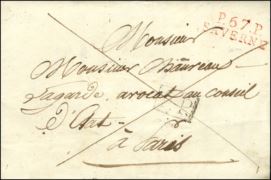 P.67.P.
SAVERNE
Monsieur
Monsieur Hâureau
Lagarde, avocat au conseil
d'Etat
à Paris